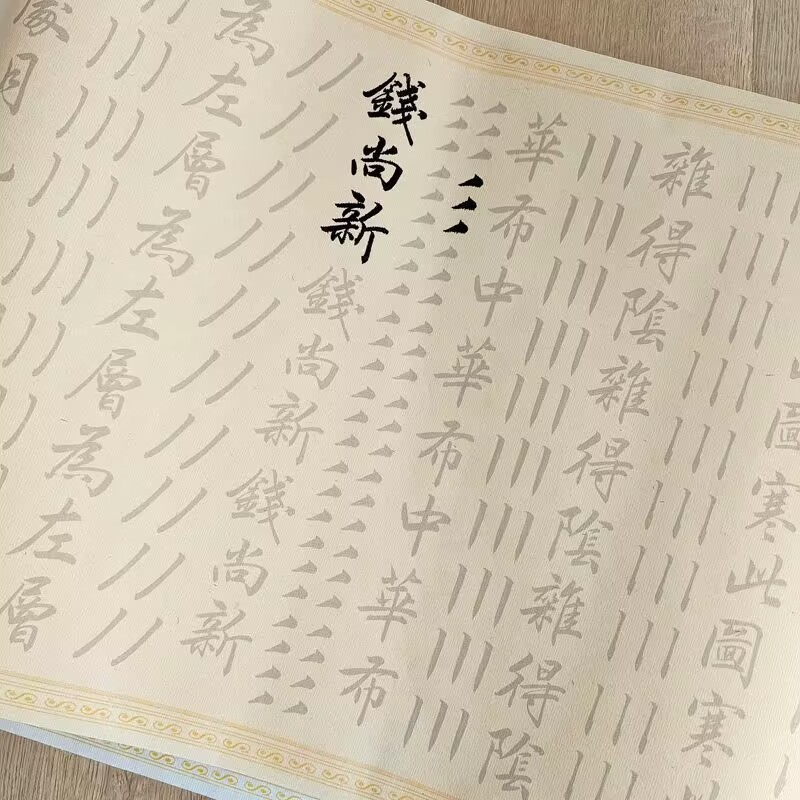 圖寒此圖寒
雜得陰雜得陰雜得陰
華布中華布中華布
錢尚新錢尚新錢尚新
為左層為左層為左層
歲月